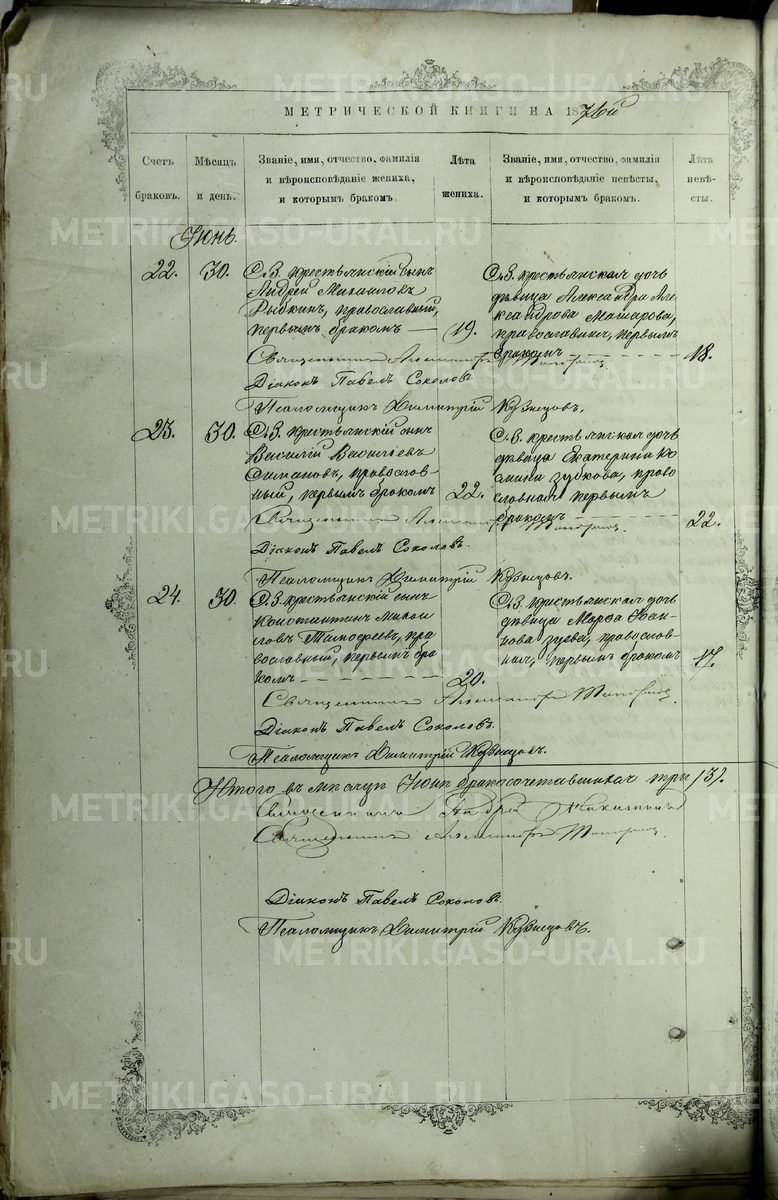 МЕТРИЧЕСКОЙ КНИГИ НА 1876й
Счетъ браковъ.
Мѣсяцъ и день.
Званіе, имя, отчество, фамилія и вѣроисповѣданіе жениха, и которымъ бракомъ.
Лѣта жениха.
Званіе, имя, отчество, фамилія и вѣроисповѣданіе невѣсты, и которымъ бракомъ.
Лѣта невѣсты.
Іюнь.
22.
30.
С. З. крестьянскій сынъ
Андрей Михаиловъ
Рыбкинъ, православный,
первымъ бракомъ —
19.
С. З. крестьянская дочь
дѣвица Александра Але-
ксандрова Машарова,
православная, первымъ
бракомъ
18.
Священникъ Александръ Топорковъ
Діаконъ Павелъ Соколовъ.
Псаломщикъ Димитрій Кузнецовъ.
23.
30.
С. З. крестьянскій сынъ
Василій Васильевъ
православ-
ный, первымъ бракомъ
22.
С. З. крестьянская дочь
дѣвица Екатерина Ко-
смина Зубкова, право-
славная первымъ
бракомъ
22.
Священникъ Александръ
Діаконъ Павелъ Соколовъ.
Псаломщикъ Димитрій Кузнецовъ.
24.
30.
С. З. крестьянскій сынъ
Константинъ Михаи-
ловъ Тимофеевъ, пра-
вославный, первымъ бра-
комъ
20.
С. З. крестьянская дочь
дѣвица Марѳа Іоан-
нова Зуева, православ-
ная, первымъ бракомъ
17.
Священникъ Александръ
Діаконъ Павелъ Соколовъ.
Псаломщикъ Димитрій Кузнецовъ.
Итого въ мѣсяцѣ Іюнѣ бракосочетавшихся три /3/.
Священникъ Андрей
Священникъ Александръ
Діаконъ Павелъ Соколовъ.
Псаломщикъ Димитрій Кузнецовъ.
METRIKI.GASO-URAL.RU